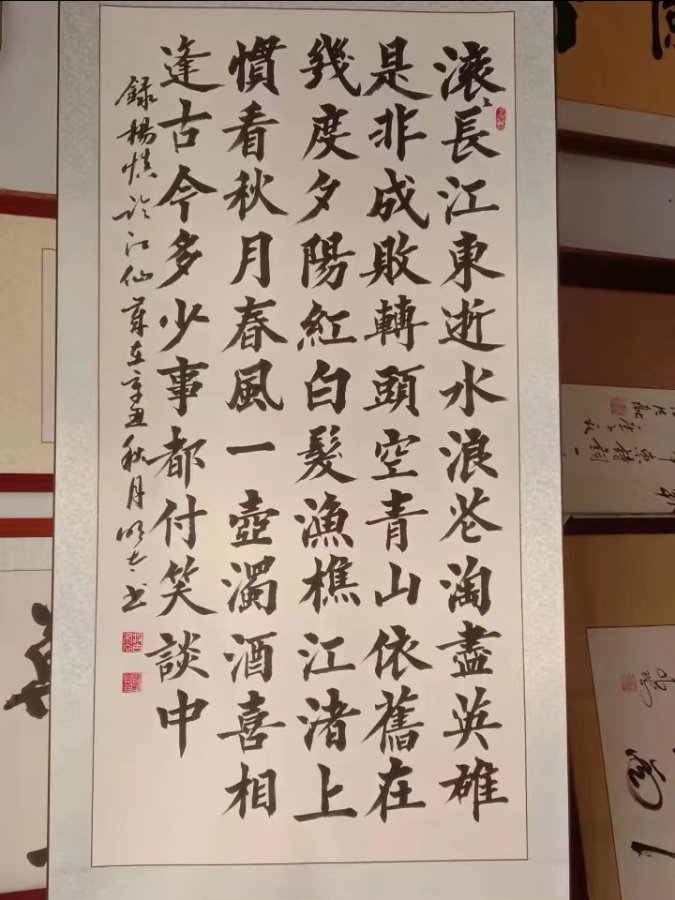 滚〻長江東逝水浪花淘盡英雄
是非成敗轉頭空青山依舊在
幾度夕陽紅白髮漁樵江渚上
慣看秋月春風一壺濁酒喜相
逢古今多少事都付笑談中
録楊慎临江仙歲在辛丑秋月书